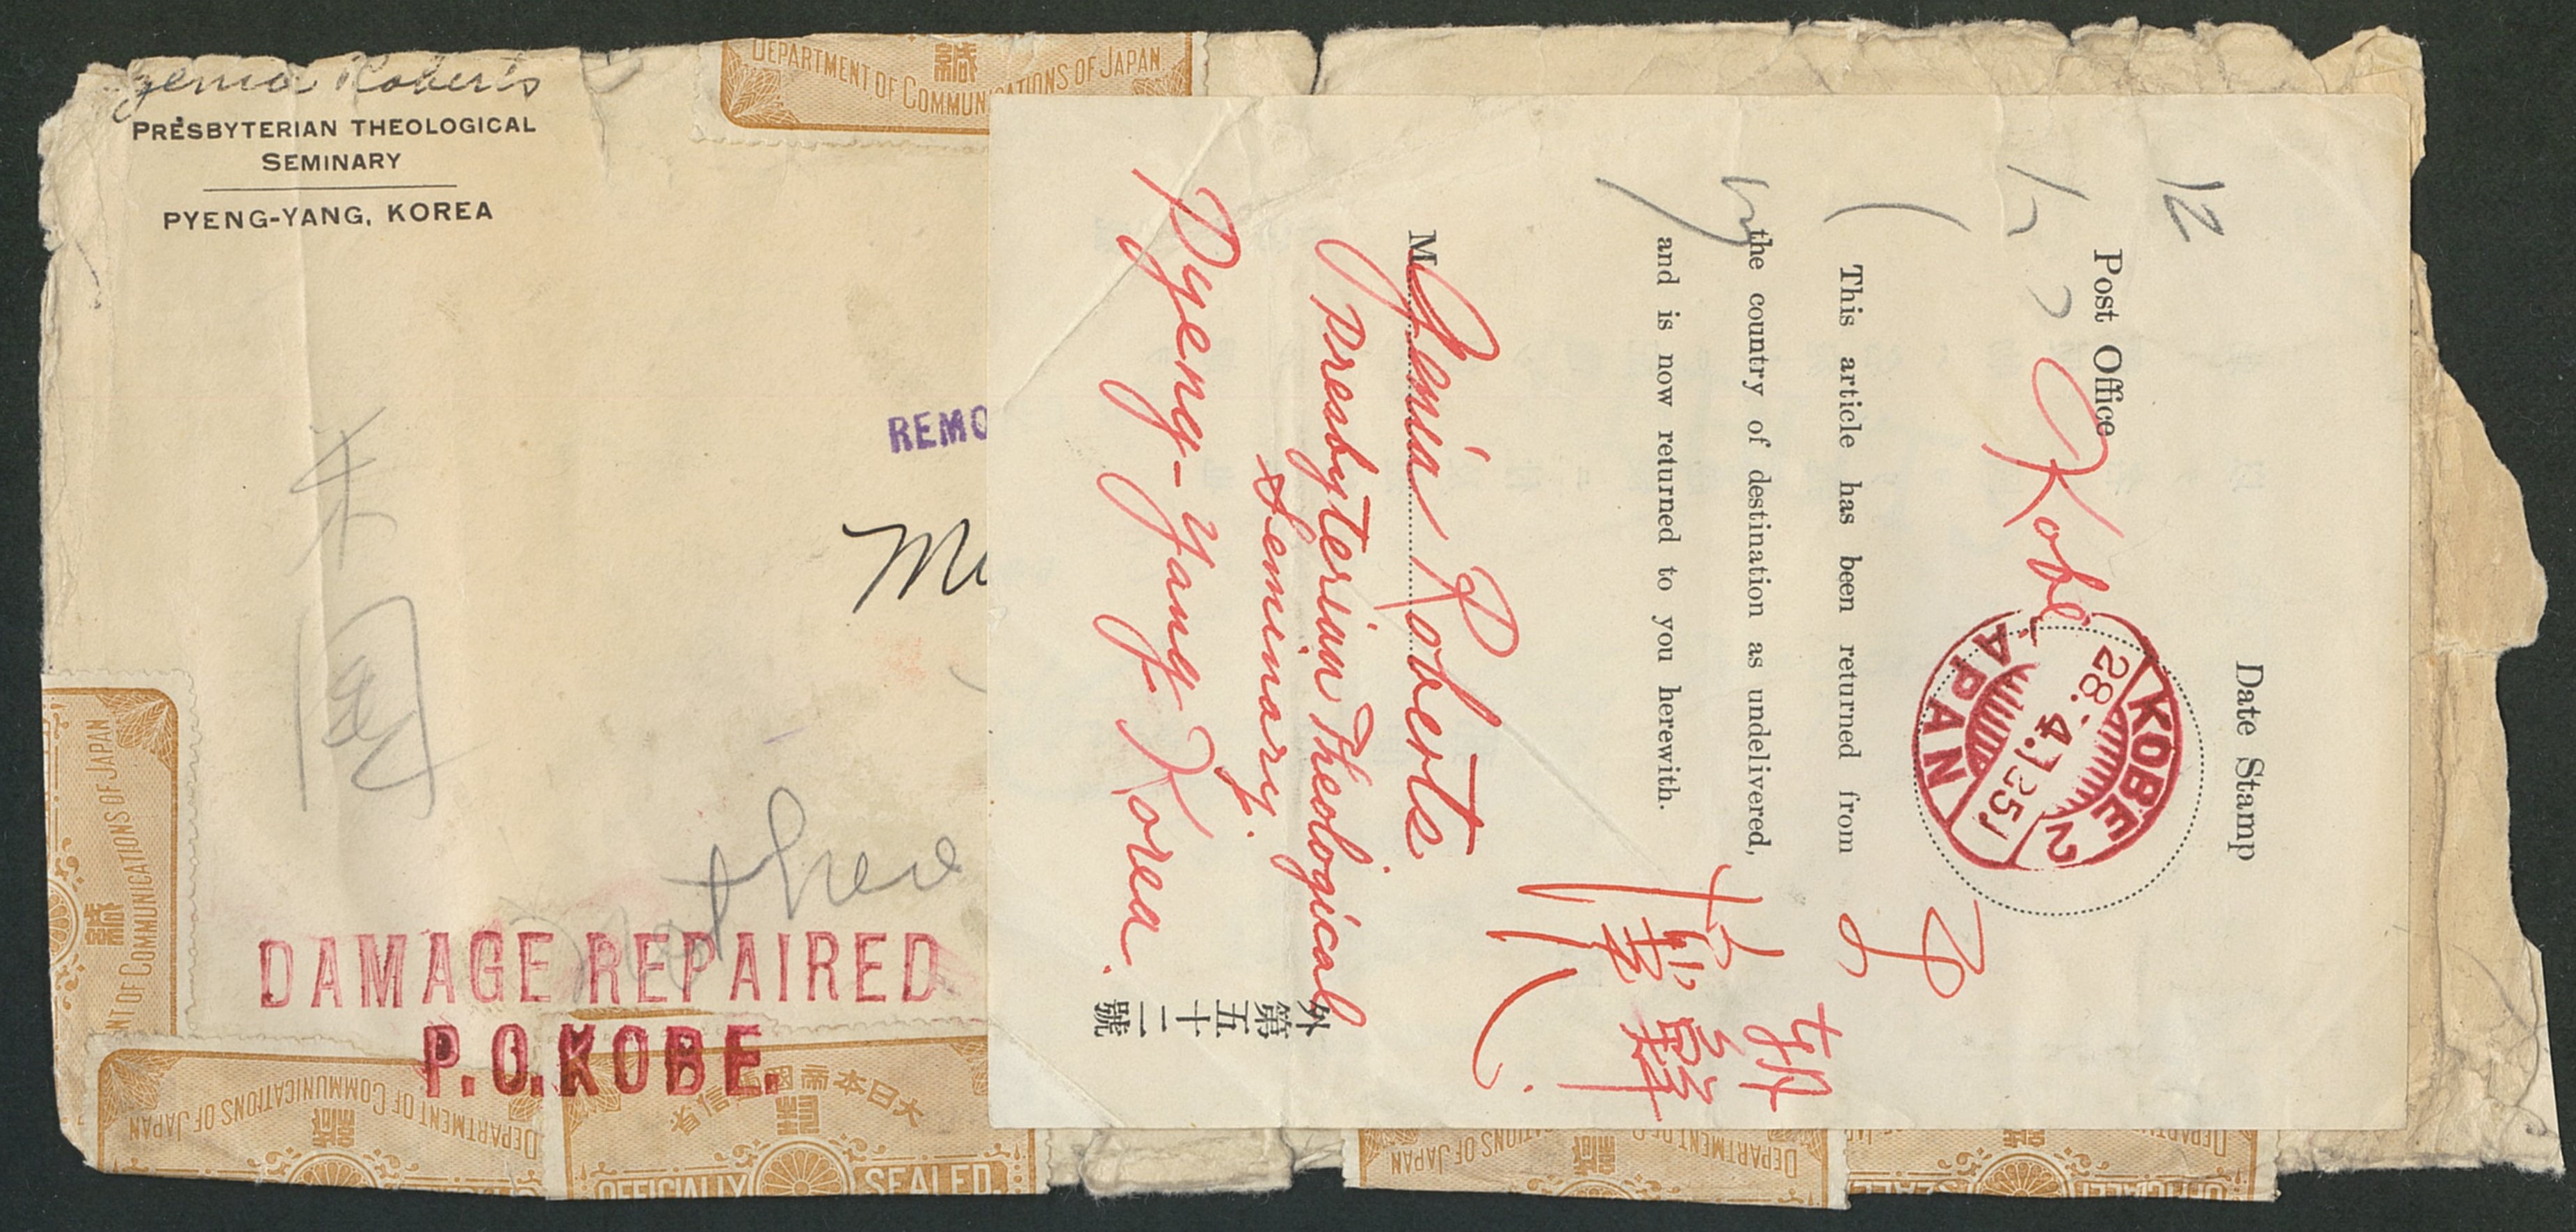 genia Roberts
PRESBYTERIAN THEOLOGICAL
SEMINARY
PYENG-YANG, KOREA
DEPARTMENT OF COMMUNICATIONS OF JAPAN
REMO
not here
DAMAGE REPAIRED
P.O. KOBE.
NT OF COMMUNICATIONS OF JAPAN
DEPARTMENT OF COMMUNICATIONS OF JAPAN
大日本帝國
OFFICIALLY SEALED
12
Date Stamp
Post Office Kobe
KOBE 2
28.4.35
JAPAN
This article has been returned from
the country of destination as undelivered,
and is now returned to you herewith.
M Genia Roberts
Presbyterian Theological
Seminary.
Pyeng-Yang Korea.
外第五十二號
DEPARTMENT OF
OFFICIALLY